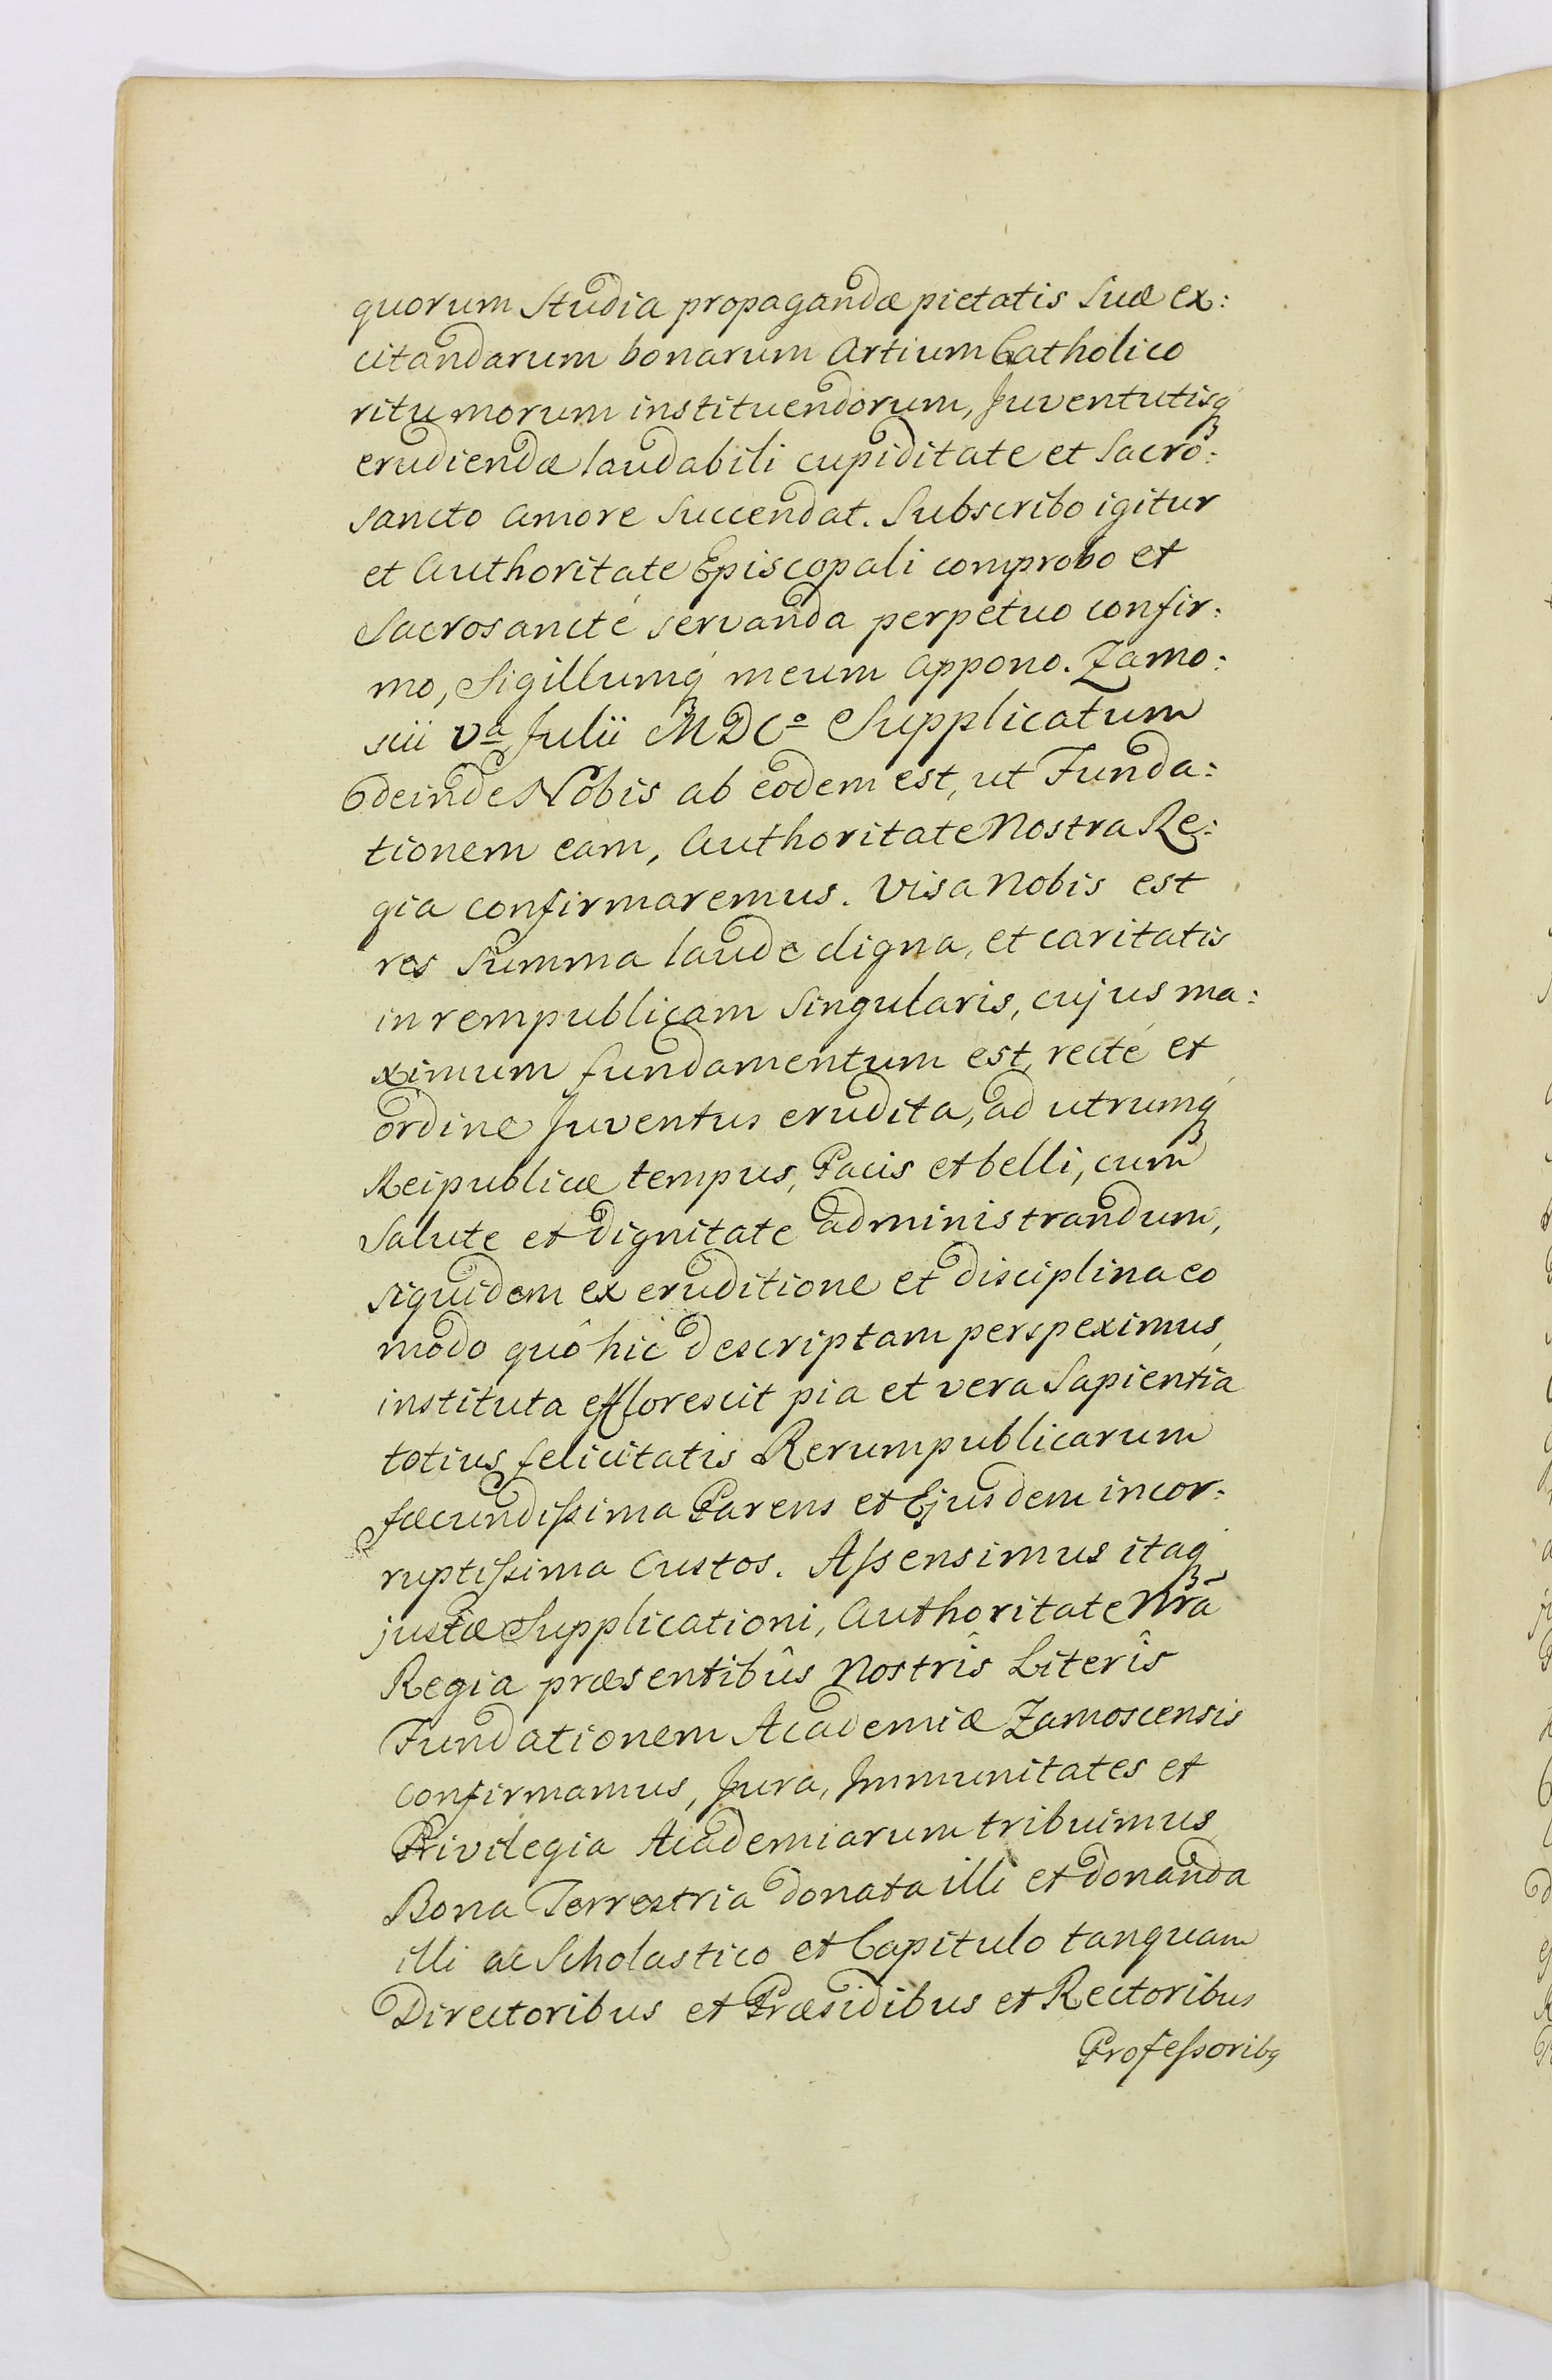 quorum Studia propagandæ pietatis Suæ ex:
citandarum bonarum Artium Catholico
ritu morum instituendorum, Juventutisq́
erudiendæ laudabili cupiditate et Sacro:
sancto Amore Succendat. Subscribo igitur
et Authoritate Episcopali comprobo et
Sacrosancté servanda perpetuo confir:
mo, Sigillumq́ meum Appono. Zamo:
scii Vª Julii MDCº Supplicatum
deinde Nobis ab eodem est, ut Funda:
tionem eam, Authoritate Nostra Re:
gia confirmaremus. Visa Nobis est
res Summa laude digna, et caritatis
in rempublicam Singularis, cujus ma:
ximum fundamentum est, recté et
ordine Juventus erudita, ad utrumq́
Reipublicæ tempus, Pacis et belli, cum
Salute et dignitate administrandum,
siquidem ex eruditione et disciplina eo
modo quô hic descriptam perspeximus,
instituta efflorescit pia et vera Sapientia
totius felicitatis Rerumpublicarum
fæcundissima Parens et Ejusdem incor:
ruptissima Custos. Assensimus itaq́
justæ Supplicationi, Authoritate Nrã
Regia præsentibûs Nostrîs Literîs
Fundationem Academiæ Zamoscensis
confirmamus, Jura, Immunitates et
Privilegia Academiarum tribuimus,
Bona Terrestria donata illi et donanda
illi ac Scholastico et Capitulo tanquam
Directoribus et Præsidibus et Rectoribus
Professoribq